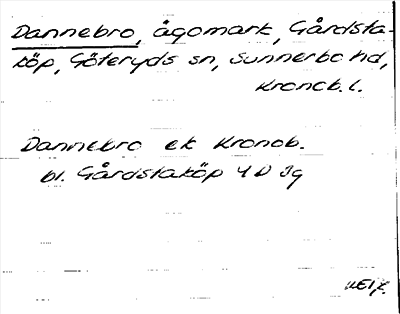 Dannebro, ägomark, Gårdsta-
köp, Göteryds sn, Sunnerbo hd,
Kronob. l.
Dannebro ek Kronob.
bl. Gårdstaköp 4 D Jg